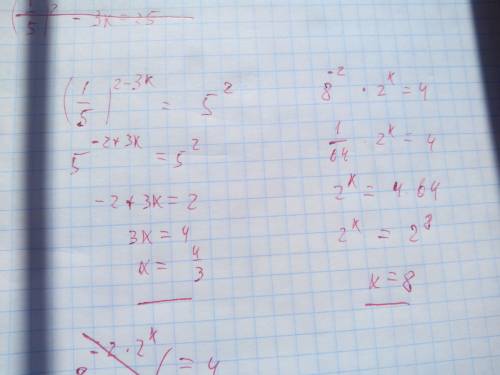 (1/5)^(2-3x) = 5^2
5^(-2+3x) = 5^2
-2+3x = 2
3x = 4
x = 4/3
8^(-2) · 2^x = 4
1/64 · 2^x = 4
2^x = 4 64
2^x = 2^8
x = 8
-2 · 2^x = 4